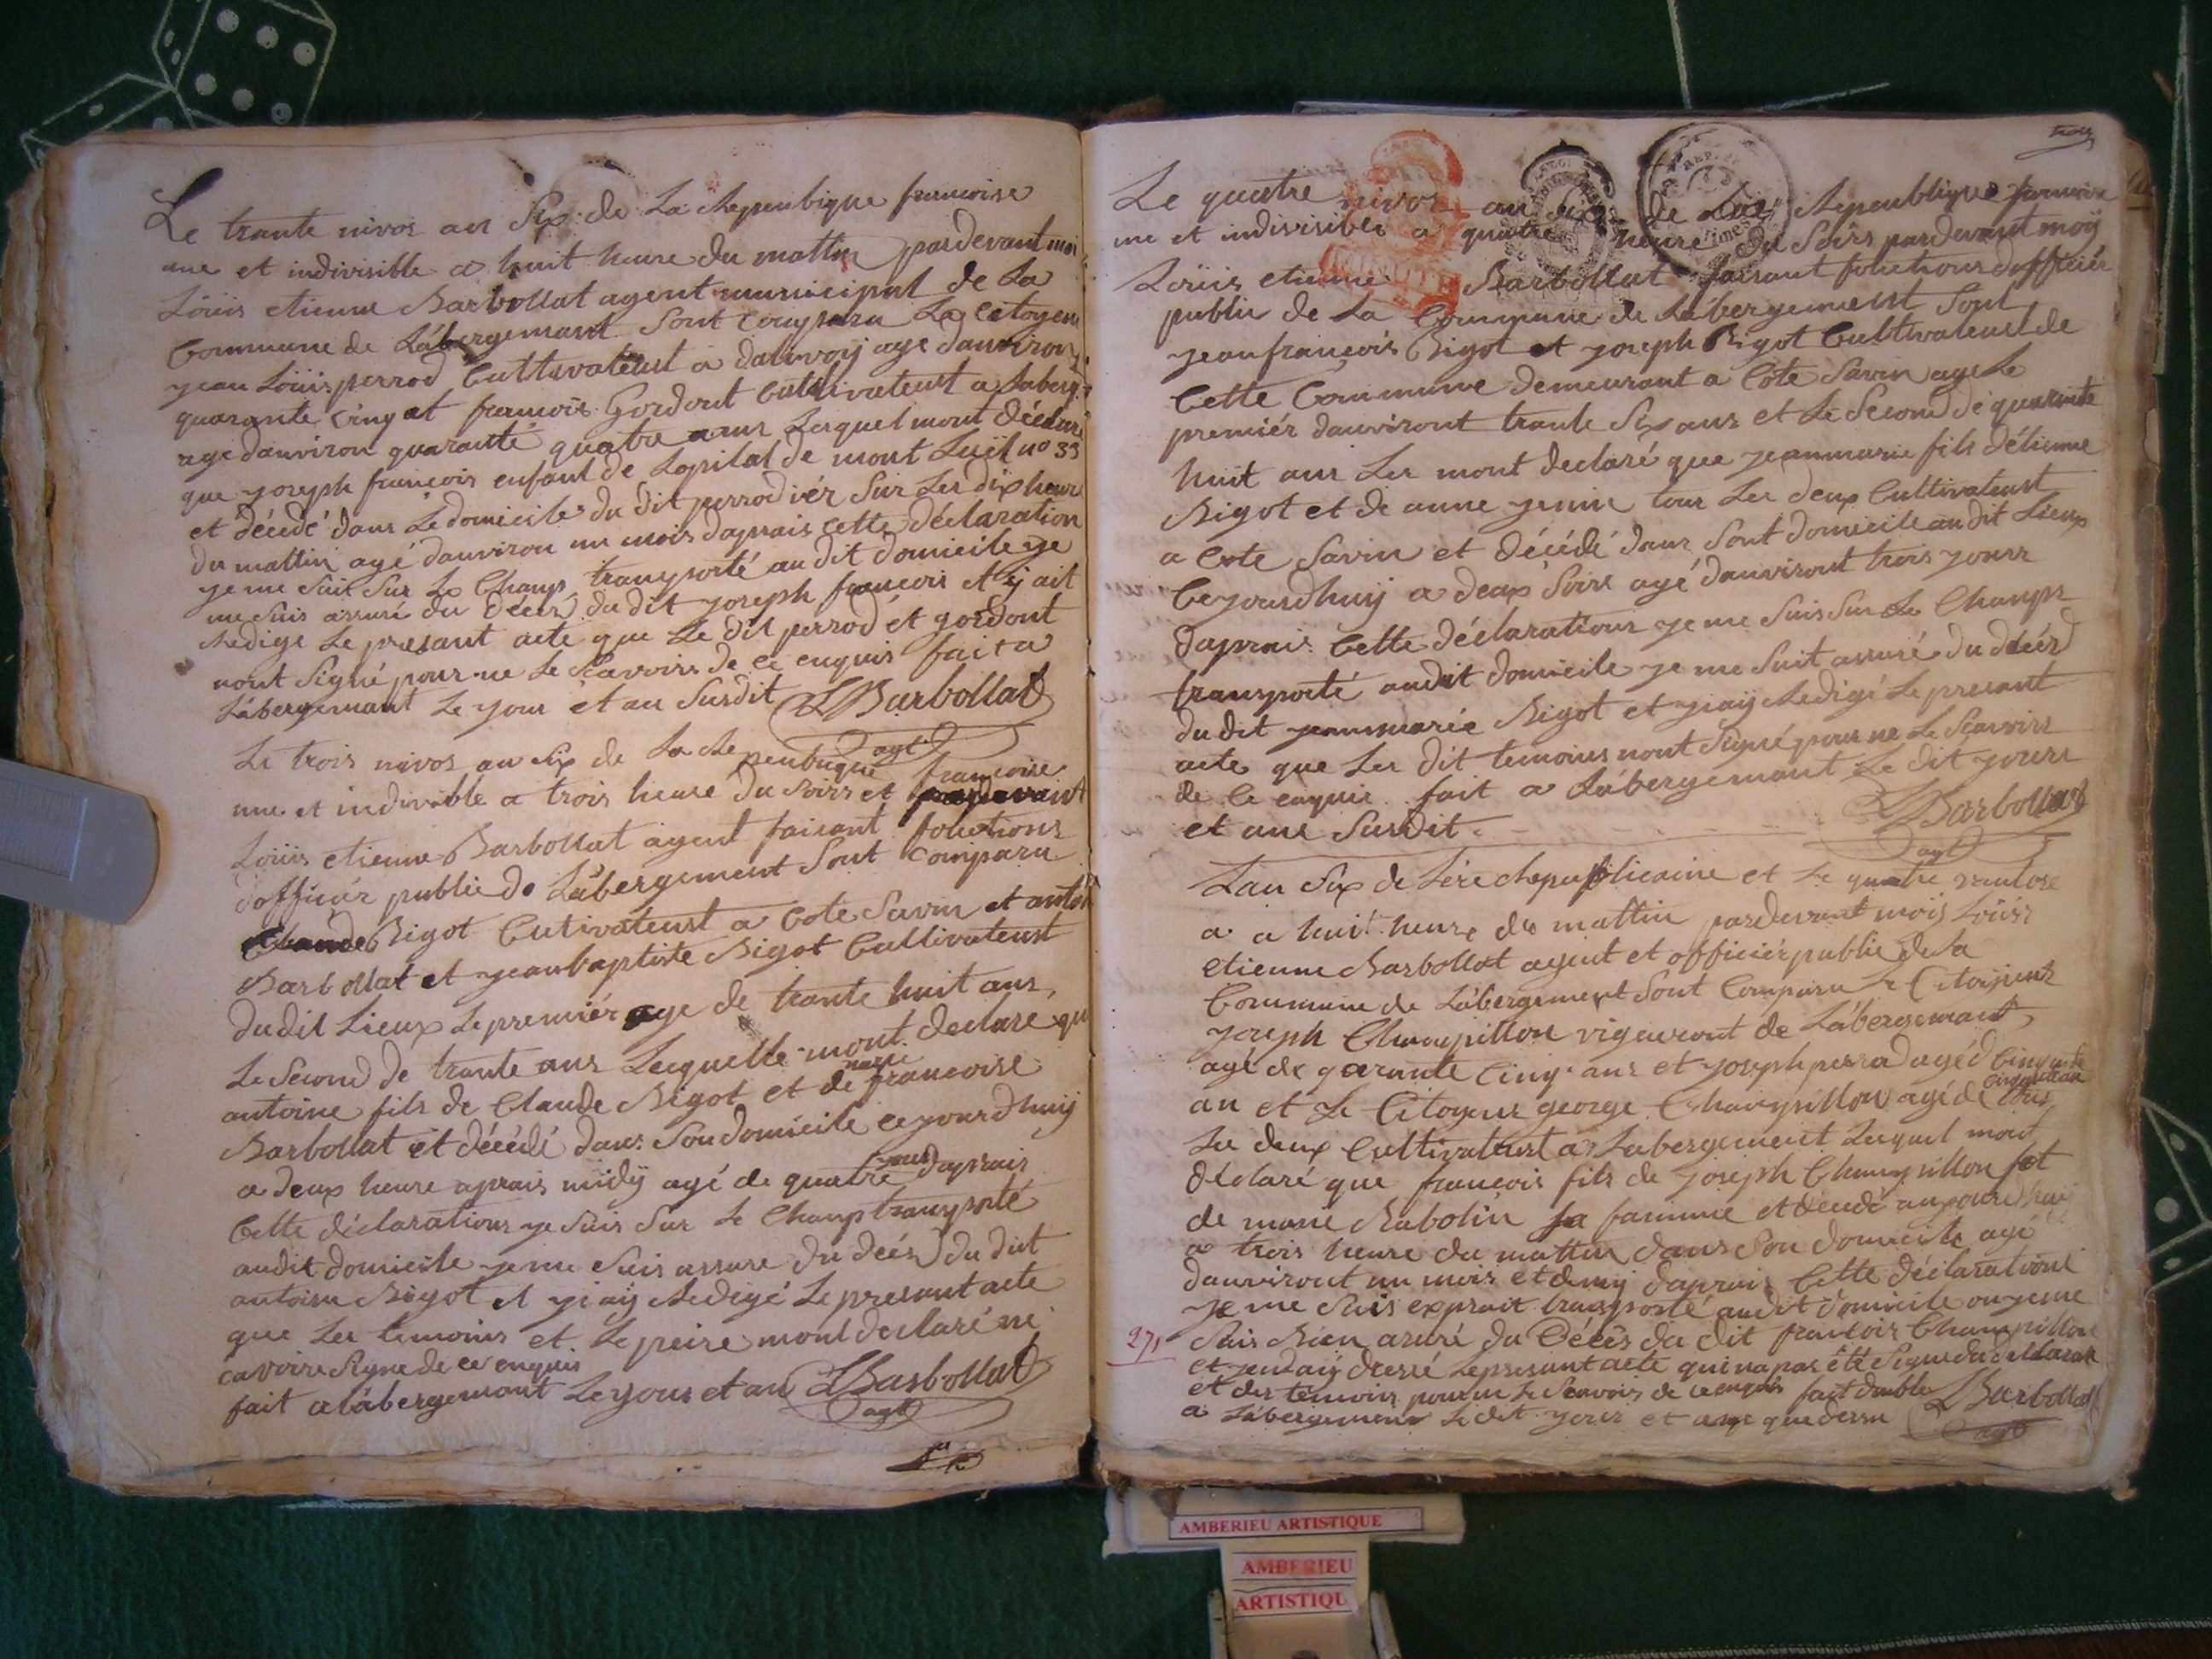 Le trante nivos an Six de La Repeubique francoise
une et indivisible a huit heure du mattin pardevant moi
Loüis etienne Barbollat agent municipal de La
Commune de Labergemant Sont Comparu Le Citoyen
jean Loüis perrod Cultivateust a dalivoy age danviron
quarante Cinq et francois Gordont Cultivateust a Laberg
age danviron quarante quatre ans Lesquel mont déclaré
que joseph francois enfant de Lopital de mont Luël no 33
et décédé dans Le domicile du dit perrod ier Sur Les dix heure
du mattin agé danviron un mois daprais cette déclaration
je me Suit Sur Le Champ transporté au dit domicile je
me Suis assuré du décès du dit joseph francois et j ait
Redige Le present acte que Le dit perrod et gordont
nont Signé pour ne Le Scavoire de Ce enquis fait a
Labergemant Le jour et an Susdit LBarbollat
agt
Le trois nivos an Six de La Repeubuque francoise
une et indivisible a trois heure du Soirs et pardevant
Loüis etienne Barbollat agent faisant fonctions
dofficiér public de Labergement Sont Comparu
Claude Bigot Cutivateust a Cote Savin et antoi
Barbollat et jeanbaptiste Bigot Cultivateust
dudit Lieux Le premiér age de trante huit ans,
Le Second de trante ans Lecquelle mont declare qu
antoine fils de Claude Bigot et de marie francoise
Barbollat et décédé dans Son domicile ce jourdhuij
a deux heure aprais midÿ agé de quatre jour daprais
Cette déclarations je Suis Sur Le Champ transporté
audit domicile je me Suis assure du décés du dit
antoine Bigot et jiaij Redigé Le presant acte
que Les temoins et Le peire mont declaré ne
cavoire Signe de ce enquis
fait a labergemant Le jour et an LBarbollat
agt
trois
Le quatre nivos an Six de La Repeublique francoise
une et indivisible a quatre heure du Soirs pardevant moÿ
Loüis etienne Barbollat faisant fonctions dofficiér
public de La Commune de Labergement Sont
jeanfrançois Bigot et joseph Bigot Cultivateust de
Cette Commune demeurant a Cote Savin age Le
premiér danviront trante Six ans et Le Second de quarante
huit ans Les mont declaré que jeanmarie fils détienne
Bigot et de anne jenin tous Les deux Cultivateust
a Cote Savin et décédé dans Sont domicile au dit Lieux
Cejourdhuij a deux Soire agé danviront trois jours
daprais Cette déclarations je me Suis Sur Le Champs
transporté audit domicile je me Suit assuré du décérd
du dit jeanmarie Bigot et jiaij Redigé Le presant
acte que Les dit temoins nont Signé pour ne Le Scavoire
de Ce enquis fait a Labergemant Le dit jours
et ans Susdit. LBarbollat
agt
Lan Six de Lére Republicaine et Le quatre vantose
a a huit heure du mattin pardevant moij Loüis
etienne Barbollat agent et officiér public de La
Commune de Labergement Sont Comparu Le Citoijens
joseph Champillon vigeuront de Labergemant
agé de qarante Cinq ans et joseph perrod agé d Cinquante
an et Le Citoyens george Champillon agé de Cinquante ans tous
Les deux Cultivateust a Labergement Lequel mont
déclaré que francois fils de joseph Champillon et
de marie Rabolin Sa famme et décédé aujourdhuij
a trois heure du mattin dans Son domicile agé
danviront un mois et demij daprais Cette déclarations
je me Suis exprait transporté audit domicile ou je me
27,
Suis Bien asuré du Décés du dit francois Champillon
et jendaij dressé Le presant acte qui na pas été Signe du declarant
et des témoins pour ne Le Scavoir de ce enquis fait double LBarbollat
a Labergement Le dit jours et an que dessu
agt
AMBERIEU ARTISTIQUE
AMBERIEU
ARTISTIQU